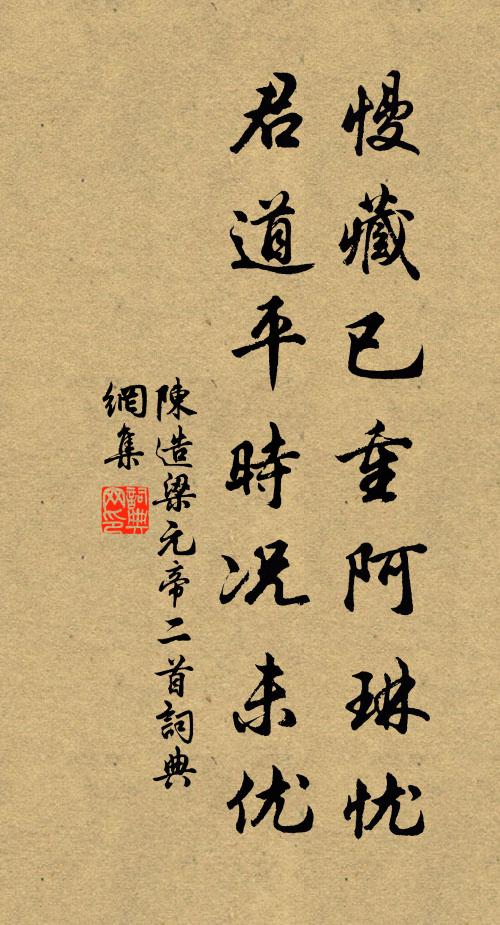 慢藏已重阿琳忧
君道平時况未优
陳造梁元帝二首詞典
網集
詞典
网印